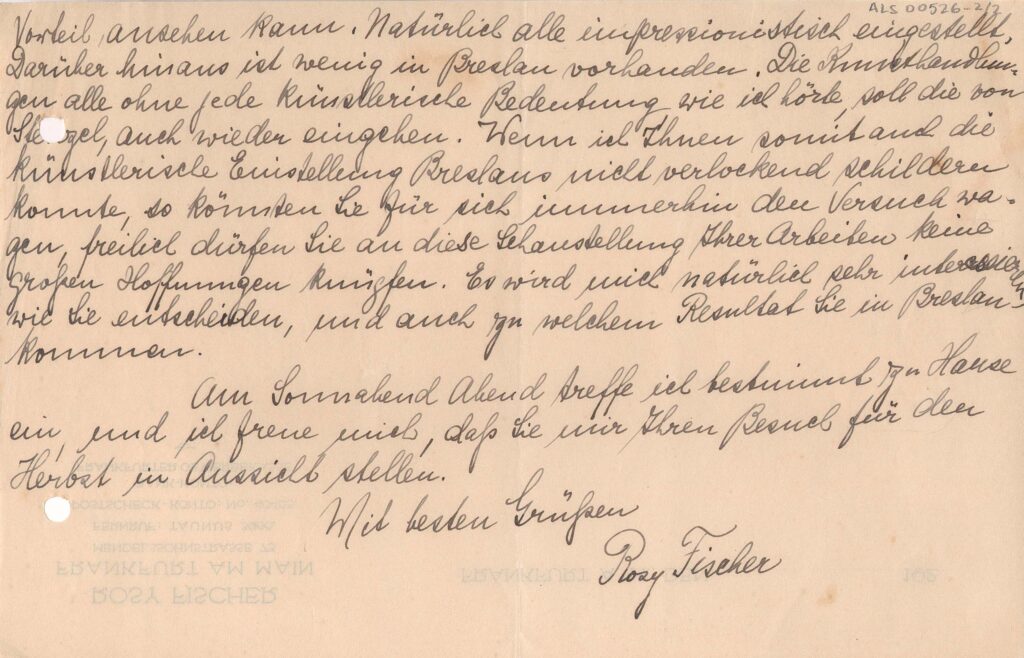 ALS 00526-2/2
Vorteil, ansehen kann. Natürlich alle impressionistisch eingestellt,
Darüber hinaus ist wenig in Breslau vorhanden. Die Kunsthandlun-
gen alle ohne jede künstlerische Bedeutung, wie ich hörte, soll die von
auch wieder eingehen. Wenn ich Ihnen somit auch die
künstlerische Einstellung Breslaus nicht verlockend schildern
konnte, so könnten Sie für sich immerhin den Versuch wa-
gen, freilich dürfen Sie an diese Schaustellung Ihrer Arbeiten keine
großen Hoffnungen knüpfen. Es wird mich natürlich sehr interessieren
wie Sie entscheiden, und auch zu welchem Resultat Sie in Breslau
kommen.
Am Sonnabend Abend treffe ich bestimmt zu Hause
ein, und ich freue mich, daß Sie mir Ihren Besuch für den
Herbst in Aussicht stellen.
Mit besten Grüßen
Rosy Fischer
POSTSCHECK-KONTO: No.
FERNRUF: TAUNUS
MENDELSSOHNSTRASSE 73
FRANKFURT AM MAIN
ROSY FISCHER